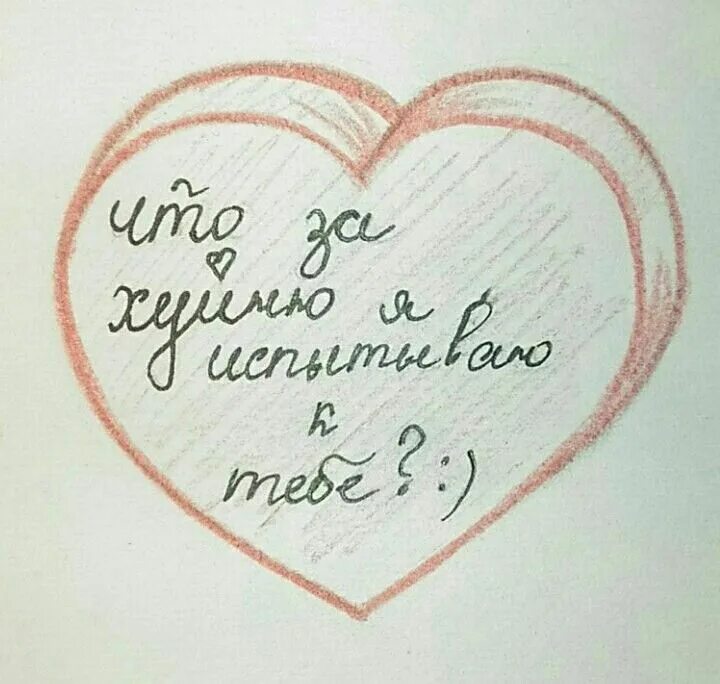 что за
хуйню я
испытываю
к
тебе? :)